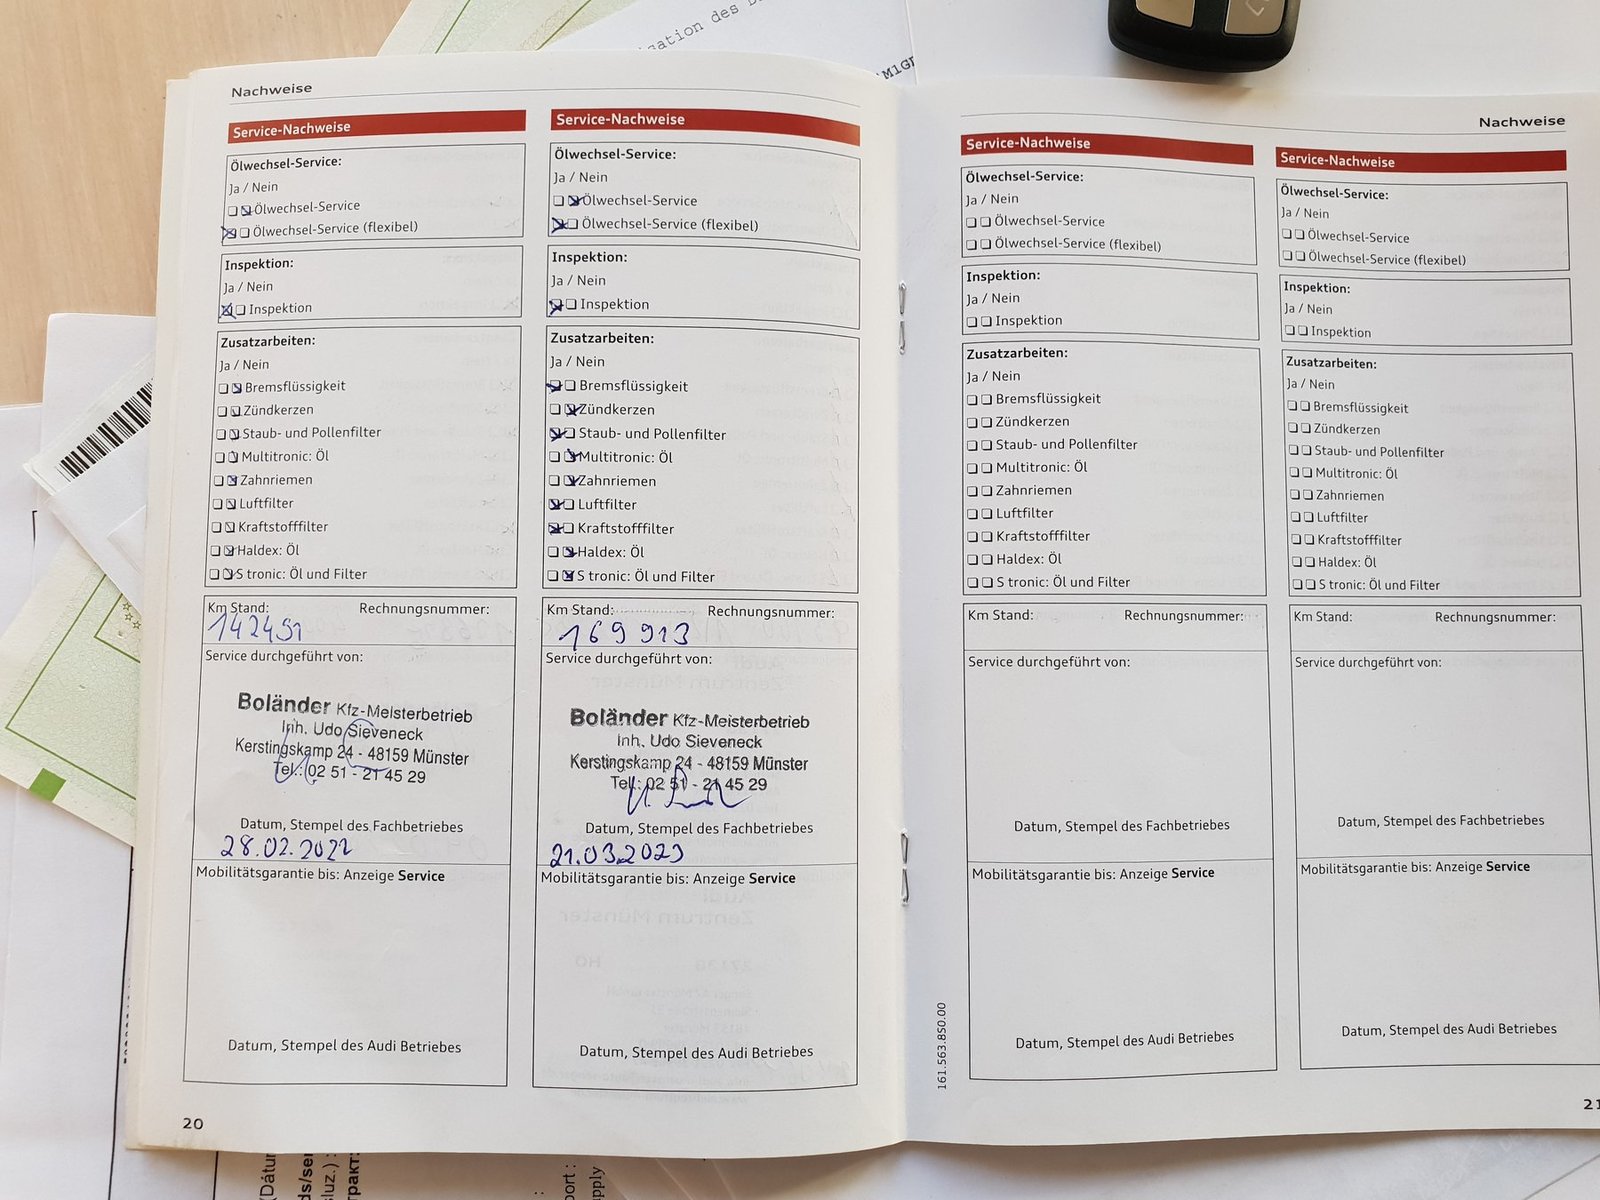 sation des
M1GF
Nachweise
Service-Nachweise
Ölwechsel-Service:
Ja / Nein
Ölwechsel-Service
Ölwechsel-Service (flexibel)
Inspektion:
Ja / Nein
Inspektion
Zusatzarbeiten:
Ja / Nein
Bremsflüssigkeit
Zündkerzen
Staub- und Pollenfilter
Multitronic: Öl
Zahnriemen
Luftfilter
Kraftstofffilter
Haldex: Öl
S tronic: Öl und Filter
Km Stand: Rechnungsnummer:
142491
Service durchgeführt von:
Boländer Kfz-Meisterbetrieb
Inh. Udo Sieveneck
Kerstingskamp 24 - 48159 Münster
Tel.: 02 51 - 21 45 29
Datum, Stempel des Fachbetriebes
28.02.2022
Mobilitätsgarantie bis: Anzeige Service
Datum, Stempel des Audi Betriebes
20
Service-Nachweise
Ölwechsel-Service:
Ja / Nein
Ölwechsel-Service
Ölwechsel-Service (flexibel)
Inspektion:
Ja / Nein
Inspektion
Zusatzarbeiten:
Ja / Nein
Bremsflüssigkeit
Zündkerzen
Staub- und Pollenfilter
Multitronic: Öl
Zahnriemen
Luftfilter
Kraftstofffilter
Haldex: Öl
S tronic: Öl und Filter
Km Stand: Rechnungsnummer:
169 913
Service durchgeführt von:
Boländer Kfz-Meisterbetrieb
Inh. Udo Sieveneck
Kerstingskamp 24 - 48159 Münster
Tel.: 02 51 - 21 45 29
Datum, Stempel des Fachbetriebes
21.03.2023
Mobilitätsgarantie bis: Anzeige Service
Datum, Stempel des Audi Betriebes
Nachweise
Service-Nachweise
Ölwechsel-Service:
Ja / Nein
Ölwechsel-Service
Ölwechsel-Service (flexibel)
Inspektion:
Ja / Nein
Inspektion
Zusatzarbeiten:
Ja / Nein
Bremsflüssigkeit
Zündkerzen
Staub- und Pollenfilter
Multitronic: Öl
Zahnriemen
Luftfilter
Kraftstofffilter
Haldex: Öl
S tronic: Öl und Filter
Km Stand: Rechnungsnummer:
Service durchgeführt von:
Datum, Stempel des Fachbetriebes
Mobilitätsgarantie bis: Anzeige Service
Datum, Stempel des Audi Betriebes
161.563.850.00
Service-Nachweise
Ölwechsel-Service:
Ja / Nein
Ölwechsel-Service
Ölwechsel-Service (flexibel)
Inspektion:
Ja / Nein
Inspektion
Zusatzarbeiten:
Ja / Nein
Bremsflüssigkeit
Zündkerzen
Staub- und Pollenfilter
Multitronic: Öl
Zahnriemen
Luftfilter
Kraftstofffilter
Haldex: Öl
S tronic: Öl und Filter
Km Stand: Rechnungsnummer:
Service durchgeführt von:
Datum, Stempel des Fachbetriebes
Mobilitätsgarantie bis: Anzeige Service
Datum, Stempel des Audi Betriebes
21
(Dátu
ds/se
sluz.) :
тракт:
port :
upply